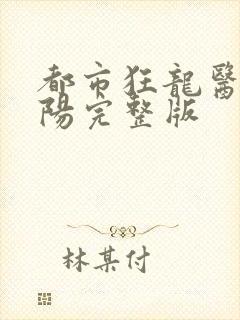 都市狂龍醫
陽完整版
林某付